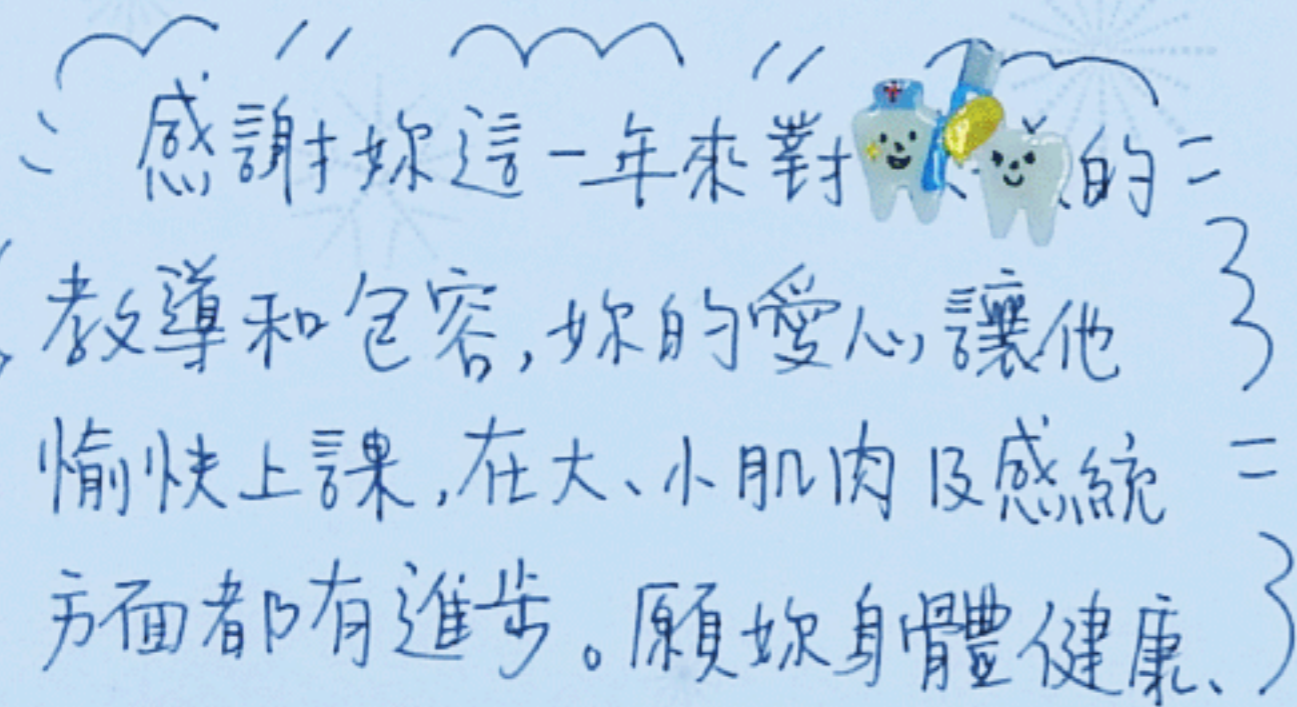 感謝妳這一年來對的
教導和包容,妳的愛心讓他
愉快上課,在大、小肌肉及感統
方面都有進步。願妳身體健康、